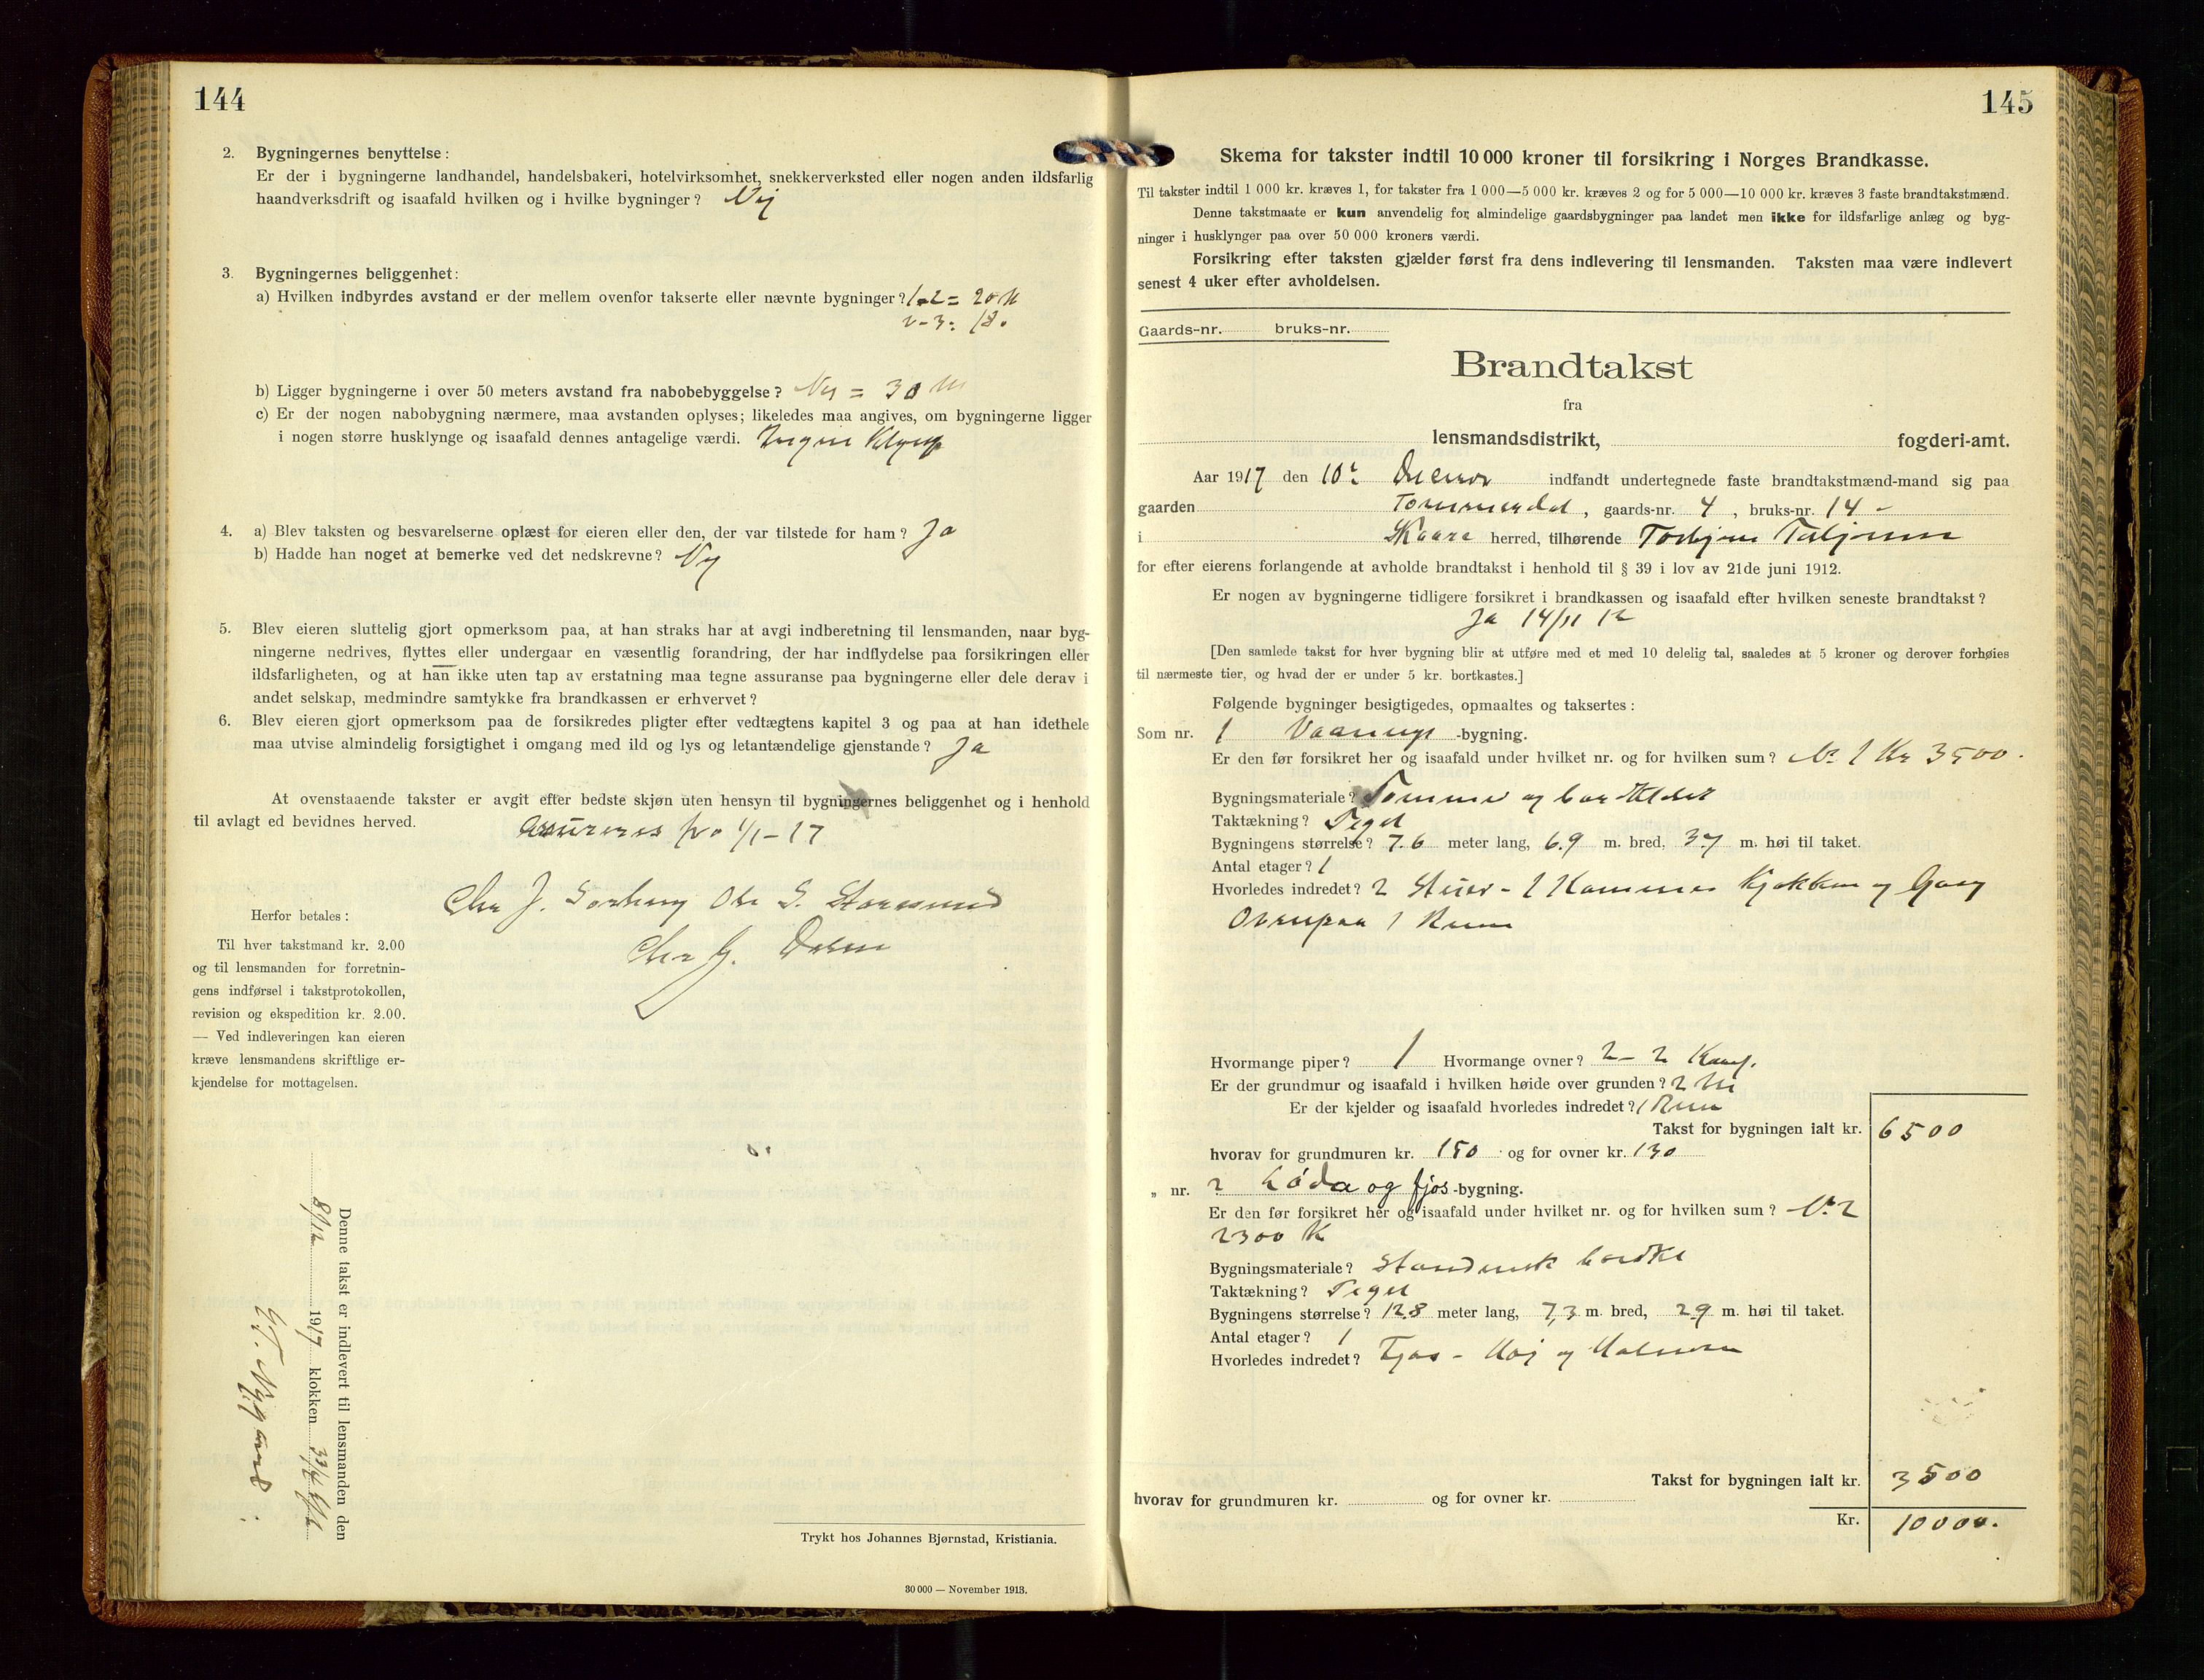 144
2. Bygningernes benyttelse:
Er der i bygningerne landhandel, handelsbakeri, hotelvirksomhet, snekkerverksted eller nogen anden ildsfarlig
haandverksdrift og isaafald hvilken og i hvilke bygninger? Nej
3. Bygningernes beliggenhet:
a) Hvilken indbyrdes avstand er der mellem ovenfor takserte eller nævnte bygninger? 1-2 = 20 M
2-3: 18.
b) Ligger bygningerne i over 50 meters avstand fra nabobebyggelse? Nej = 30 M
c) Er der nogen nabobygning nærmere, maa avstanden oplyses; likeledes maa angives, om bygningerne ligger
i nogen større husklynge og isaafald dennes antagelige værdi. Ingen Klynge
4. a) Blev taksten og besvarelserne oplæst for eieren eller den, der var tilstede for ham? Ja
b) Hadde han noget at bemerke ved det nedskrevne? Nej
5. Blev eieren sluttelig gjort opmerksom paa, at han straks har at avgi indberetning til lensmanden, naar byg-
ningerne nedrives, flyttes eller undergaar en væsentlig forandring, der har indflydelse paa forsikringen eller
ildsfarligheten, og at han ikke uten tap av erstatning maa tegne assuranse paa bygningerne eller dele derav i
andet selskap, medmindre samtykke fra brandkassen er erhvervet?
6. Blev eieren gjort opmerksom paa de forsikredes pligter efter vedtægtens kapitel 3 og paa at han idethele
maa utvise almindelig forsigtighet i omgang med ild og lys og letantændelige gjenstande? Ja
At ovenstaaende takster er avgit efter bedste skjøn uten hensyn til bygningernes beliggenhet og i henhold
til avlagt ed bevidnes herved.
1/1-17
Chr J.
Chr J.
Herfor betales:
Til hver takstmand kr. 2.00
og til lensmanden for forretnin-
gens indførsel i takstprotokollen,
revision og ekspedition kr. 2.00.
— Ved indleveringen kan eieren
kræve lensmandens skriftlige er-
kjendelse for mottagelsen.
Denne takst er indlevert til lensmanden den
8/12 1917 klokken
Trykt hos Johannes Bjørnstad, Kristiania.
30 000 — November 1913.
145
Skema for takster indtil 10 000 kroner til forsikring i Norges Brandkasse.
Til takster indtil 1 000 kr. kræves 1, for takster fra 1 000—5 000 kr. kræves 2 og for 5 000—10 000 kr. kræves 3 faste brandtakstmænd.
Denne takstmaate er kun anvendelig for almindelige gaardsbygninger paa landet men ikke for ildsfarlige anlæg og byg-
ninger i husklynger paa over 50 000 kroners værdi.
Forsikring efter taksten gjælder først fra dens indlevering til lensmanden. Taksten maa være indlevert
senest 4 uker efter avholdelsen.
Gaards-nr. bruks-nr.
Brandtakst
fra
lensmandsdistrikt, fogderi-amt.
Aar 1917 den 10. indfandt undertegnede faste brandtakstmænd-mand sig paa
gaarden Tommerdal, gaards-nr. 4, bruks-nr. 14 -
i Skaare herred, tilhørende
for efter eierens forlangende at avholde brandtakst i henhold til § 39 i lov av 21de juni 1912.
Er nogen av bygningerne tidligere forsikret i brandkassen og isaafald efter hvilken seneste brandtakst?
Ja 14/11 12
[Den samlede takst for hver bygning blir at utføre med et med 10 delelig tal, saaledes at 5 kroner og derover forhøies
til nærmeste tier, og hvad der er under 5 kr. bortkastes.]
Følgende bygninger besigtigedes, opmaaltes og taksertes:
Som nr. 1 Vaanings-bygning.
Er den før forsikret her og isaafald under hvilket nr. og for hvilken sum? No 1 Kr 3500.
Bygningsmateriale? Tømmer og bordklædt
Taktækning? Tegel
Bygningens størrelse? 7.6 meter lang, 6.9 m. bred, 3.7 m. høi til taket.
Antal etager? 1
Hvorledes indredet? 2 Stuer - 1 Kammer Kjøkken og Gang
Ovenpaa 1 Rum
Hvormange piper? 1 Hvormange ovner? 2 - 2 Komf.
Er der grundmur og isaafald i hvilken høide over grunden? 2 M
Er der kjelder og isaafald hvorledes indredet? 1 Rum
Takst for bygningen ialt kr. 6500
hvorav for grundmuren kr. 150 og for ovner kr. 130
„ nr. 2 Løda og fjos-bygning.
Er den før forsikret her og isaafald under hvilket nr. og for hvilken sum? No 2
2300 K
Bygningsmateriale? Standverk bordkl
Taktækning? Tegel
Bygningens størrelse? 12.8 meter lang, 7,3 m. bred, 2.9 m. høi til taket.
Antal etager? 1
Hvorledes indredet? Fjos - Høj og
Takst for bygningen ialt kr. 3500
hvorav for grundmuren kr. og for ovner kr.
Kr. 10000.